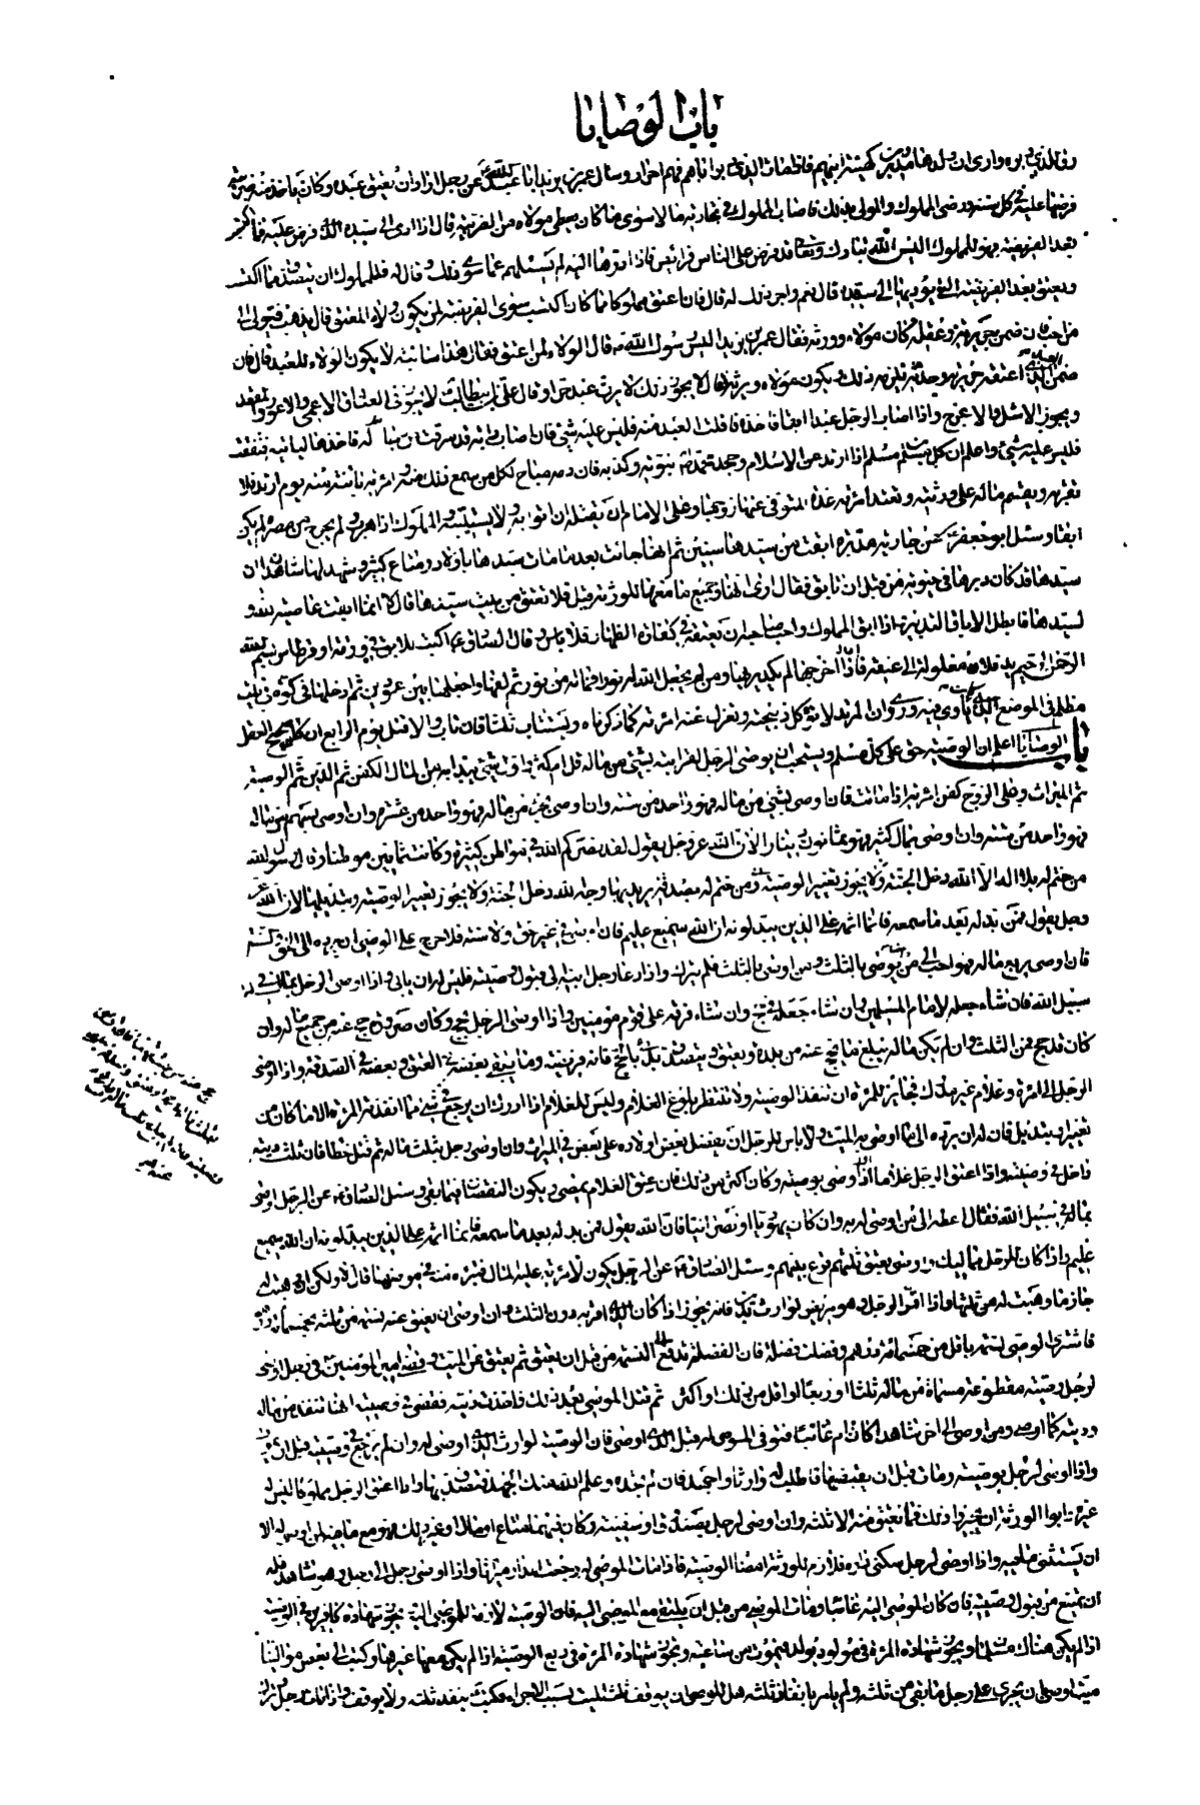 باب الوصايا
فرضها عليه في كل سنة ورضي المملوك والمولى بذلك فاصاب المملوك في تجارته مالا سوى ما كان يعطي مولاه من الضريبة قال اذا ادى الى سيده ما كان فرض عليه فما اكتسب
بعد الفريضة فهو للمملوك اليس الله تبارك وتعالى قد فرض على الناس فرائض فاذا ادوها اليه لم يسئلهم عما سوى ذلك وقال له فللمملوك ان يتصدق مما اكتسب
ويعتق بعد الفريضة التي يؤديها الى سيده قال نعم واجر ذلك له قال فان اعتق مملوكا مما كان اكتسب سوى الفريضة لمن يكون ولاء المعتق قال يذهب فيتولى الى
من احب فان ضمن جريرته وعقله كان مولاه وورثه فقال عمر بن يزيد اليس رسول الله قال الولاء لمن اعتق فقال هذا سائبة لا يكون الولاء للعبد قال فان
ضمن العبد الذي اعتقه جريرته وحدثه يلزمه ذلك ويكون مولاه ويرثه قال لا يجوز ذلك لا يرث عبد حرا وقال علي بن ابيطالب لا يجوز في العتاق الاعمى والاعور والمقعد
ويجوز الاشل والاعرج واذا اصاب الرجل عبدا ابقا فاخذه فافلت العبد منه فليس عليه شئ فان اصاب دابة قد سرقت من جار له فاخذها ليأتيه بها فنفقت
فليس عليه شئ واعلم ان كل مسلم بن مسلم اذا ارتد عن الاسلام وجحد محمدا نبوته وكذبه فان دمه مباح لكل من سمع ذلك منه وامراته بائنة منه يوم ارتد فلا
تقربه ويقسم ماله على ورثته وتعتد امراته عدة المتوفى عنها زوجها وعلى الامام ان يقتله ان اتوا به ولا يستتيبه والمملوك اذا هرب ولم يخرج من مصره لم يكن
ابقا وسئل ابو جعفر عن جارية مدبرة ابقت من سيدها سنين ثم انها جائت بعد ما مات سيدها باولاد ومتاع كثير وشهد لها شاهدان ان
سيدها قد كان دبرها في حيوته من قبل ان تابق فقال ارى انها وجميع ما معها للورثة قيل فلا تعتق من ثلث سيدها قال لا انما ابقت عاصية لله و
لسيدها فابطل الاباق التدبير واذا ابق المملوك واحب صاحبه ان يعتقه في كفارة الظهار فلا باس وقال الصادق اكتب للابق في ورقة او قرطاس بسم الله
الرحمن الرحيم يد فلان مغلولة الى عنقه اذا اخرجها لم يكد يريها ومن لم يجعل الله له نورا فما له من نور ثم لفها واجعلها بين عودين ثم القها في كوة بيت
مظلم في الموضع الذي كان ياوي فيه وروي ان المرتد لا تؤكل ذبيحته وتعزل عنه امراته كما ذكرناه ويستتاب ثلثا فان تاب والا قتل يوم الرابع ان كان صحيح العقل
باب الوصايا اعلم ان الوصية حق على كل مسلم ويستحب ان يوصي الرجل لقرابته بشئ من ماله قل ام كثر واول شئ يبدا به من المال الكفن ثم الدين ثم الوصية
ثم الميراث وعلى الزوج كفن امراته اذا ماتت فان اوصى بشئ من ماله فهو واحد من ستة وان اوصى بجزء من ماله فهو واحد من عشرة وان اوصى بسهم من ماله
فهو واحد من ستة وان اوصى بمال كثير فهو ثمانون دينارا لان الله عز وجل يقول لقد نصركم الله في مواطن كثيرة وكانت ثمانين موطنا وقال رسول الله
من ختم له بلا اله الا الله دخل الجنة ومن ختم له بصدقة يريد بها وجه الله دخل الجنة ولا يجوز تغيير الوصية وتبديلها لان الله عز
وجل يقول فمن بدله بعد ما سمعه فانما اثمه على الذين يبدلونه ان الله سميع عليم فان اوصى في غير حق ولا سنة فلا حرج على الوصي ان يرده الى الحق والسنة
فان اوصى بربع ماله فهو احب الي من ان يوصي بالثلث ومن اوصى بالثلث فلم يترك واذا دعا رجل ابنه الى قبول وصيته فليس له ان يابى واذا اوصى الرجل بمال في
سبيل الله فان شاء جعله لامام المسلمين وان شاء جعله في حج وان شاء فرقه على قوم مؤمنين واذا اوصى الرجل بحج وكان صرورة حج عنه من جميع ماله وان
كان قد حج فمن الثلث فان لم يكن ماله يبلغ ما يحج عنه من بلده ويعتق ويتصدق بدئ بالحج فانه فريضة وما يبقى بعضه في العتق وبعضه في الصدقة واذا اوصى
الرجل الى امراة وغلام غير مدرك فجائز للمراة ان تنفذ الوصية ولا تنتظر بلوغ الغلام وليس للغلام اذا ادرك ان يرجع في شئ مما انفذته المراة الا ما كان من
تغيير او تبديل فان له ان يرده الى ما اوصى به الميت ولا باس للرجل ان يفضل بعض اولاده على بعض في الميراث وان اوصى رجل بثلث ماله ثم قتل خطا فان ثلث ديته
داخل في وصيته واذا اعتق الرجل غلاما او اوصى بوصية وكان اكثر من ذلك فان عتق الغلام يمضي ويكون النقصان فيما بقي وسئل الصادق عن الرجل اوصى
بماله في سبيل الله فقال اعطه الى من اوصى له به وان كان يهوديا او نصرانيا فان الله يقول فمن بدله بعد ما سمعه فانما اثمه على الذين يبدلونه ان الله سميع
عليم واذا كان للرجل مماليك واوصى بعتق ثلثهم قرع بينهم وسئل الصادق عن الرجل يكون لامراته عليه المال فتبرئه منه في مرضها قال لا ولكن ان وهبته له
جاز ما وهبت له من ثلثها واذا اقر الرجل وهو مريض لوارث بدين فانه يجوز اذا كان الذي اقر به دون الثلث وان اوصى ان يعتق عنه نسمة من ثلثه بخمسمائة درهم
فاشترى الوصي نسمة باقل من خمسمائة درهم وفضلت فضلة فان الفضلة تدفع الى النسمة من قبل ان يعتق ثم يعتق عن الميت وقضى امير المؤمنين في رجل اوصى
لرجل وصية مقطوعة مسماة من ماله ثلثا او ربعا او اقل من ذلك او اكثر ثم قتل الموصي بعد ذلك فاخذت ديته فقضى في وصيته انها تنفذ من ماله
وديته كما اوصى ومن اوصى الى اخر شاهدا كان ام غائبا فتوفي الموصى له قبل الذي اوصى فان الوصية لوارث الذي اوصى له وان لم يرجع في وصيته قبل ان يموت
واذا اوصى لرجل بوصية ومات قبل ان يقبضها فاطلب له وارثا واجهد فان لم تجده وعلم الله منك الجهد فتصدق بها واذا اعتق الرجل مملوكا ليس له
غيره وابوا الورثة ان يجيزوا ذلك فما يعتق منه الا ثلثه وان اوصى لرجل بصندوق او سفينة وكان فيهما متاع او مال او غير ذلك فهو مع ما فيه لمن اوصى له الا
ان يستثنى ما فيه واذا اوصى لرجل بسكنى داره فلازم للورثة امضاء الوصية فاذا مات الموصى له رجعت الدار ميراثا واذا اوصى رجل الى رجل وهو شاهد فله
ان يمتنع من قبول وصيته فان كان الموصى اليه غائبا ومات الموصي من قبل ان يلتقي مع الموصى اليه فان الوصية لازمة للموصى اليه ويجوز شهادة كافرين في الوصية
اذا لم يكن هناك مسلمان ويجوز شهادة المراة في مولود يولد فيموت من ساعته وتجوز شهادة المراة في ربع الوصية اذا لم يكن معها غيرها وكتب الى بعض موالينا
ميت اوصى ان يجرى على رجل ما بقي من ثلثه ولم يامر بانفاذ ثلثه هل للوصي ان يوقف ثلث الميت بسبب الاجراء فكتب ينفذ ثلثه ولا يوقف واذا مات رجل